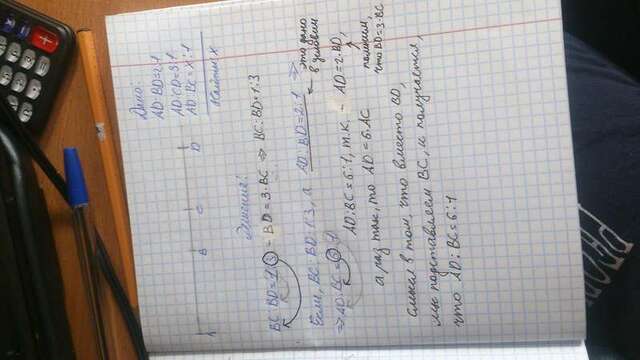 Дано:
AD:BD=2:1
AD:CD=3:1
AD:BC=x:1
A B C D
Решение:
BC:BD=1:3 = BD=3·BC => BC:BD=1:3
Если, BC:BD=1:3, а AD:BD=2:1 => это дано в условии
=> AD:BC=6:1
AD:BC=6:1, т.к. – AD=2·BD,
помним, что BD=3·BC
а раз так, то AD=6·AC
Смысл в том, что вместо BD,
мы подставляем BC, и получается,
что AD:BC=6:1